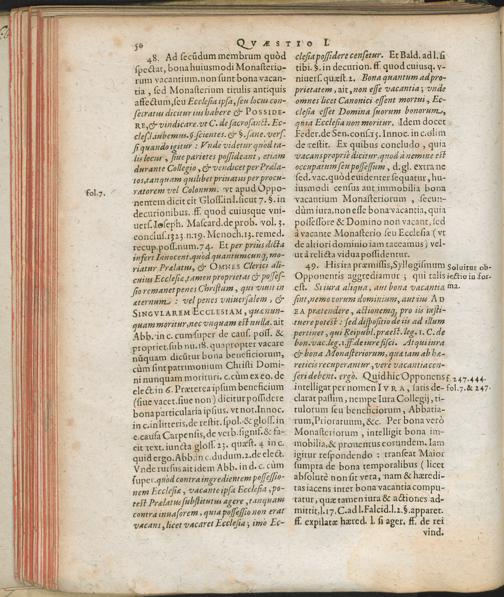 50
QVÆSTIO I.
48. Ad secũdum membrum quòd
spectat, bona huiusmodi Monasterio-
rum vacantium, non sunt bona vacan-
tia, sed Monasterium titulis antiquis
affectum, seu Ecclesia ipsa, seu locus con-
secratus dicitur iis habere & POSSIDE-
RE, & vindicare. vt C. de sacrosanct. Ec-
cles. l. iubemus. §. scientes. & §. sane. vers.
si quando igitur: Vnde videtur quod ta-
lis locus, siue parietes possideant, etiam
durante Collegio, & vendicet per Præla-
tos, tanquam quilibet priuatus per procu-
ratorem vel Colonum. vt apud Oppo-
nentem dicit eit Gloss. in l. sicut 7. §. in
decurionibus. ff. quod cuiusque vni-
uers. Ioseph. Mascard. de prob. vol. 3.
conclus. 1323 n. 19. Menoch. 13. remed.
recup. poss. num. 74. Et per priùs dicta
infert Innocent. quod quantumcunq, mo-
riatur Prælatus, & OMNES Clerici ali-
cuius Ecclesiæ, tamen proprietas & posses-
sio remanet penes Christum, qui viuit in
æternum: vel penes vniuersalem, &
SINGVLAREM ECCLESIAM, quæ nun-
quam moritur, nec vnquam est nulla. ait
Abb. in c. cum super de caus. poss. &
propriet. sub nu. 18. quapropter vacare
nũquam dicũtur bona beneficiorum,
cùm sint patrimonium Christi Domi-
ni nunquam morituri. c. cùm ex eo. de
elect. in 6. Præterea ipsum beneficium
(siue vacet, siue non) dicitur possidere
bona particularia ipsius. vt not. Innoc.
in c. in litteris. de restit. spol. & gloss. in
c. causa Carpensis, de verb. signif. & fa-
cit text. iuncta gloss. 23. quæst. 4. in c.
quid ergo. Abb. in c. dudum. 2. de elect.
Vnde rursus ait idem Abb. in d. c. cùm
super. quòd contra ingredientem possessio-
nem Ecclesiæ, vacante ipsa Ecclesia, po-
test Prælatus substitutus agere, tanquam
contra inuasorem, quia possessio non erat
vacans, licet vacaret Ecclesia; imo Ec-
clesia possidere censetur. Et Bald. ad l. si
tibi. §. in decurion. ff. quod cuiusq. v-
niuers. quæst. 2. Bona quantum ad pro-
prietatem, ait, non esse vacantia; vnde
omnes licet Canonici essent mortui, Ec-
clesia esset Domina suorum bonorum,
quia Ecclesia non moritur. Idem docet
Feder. de Sen. cons. 15. Innoc. in c. olim
de restit. Ex quibus concludo, quia
vacans propriè dicitur, quod à nemine est
occupatum seu possessum, d. gl. extra ne
sed. vac. quòd euidenter sequatur, hu-
iusmodi census aut immobilia bona
vacantium Monasteriorum, secun-
dùm iura, non esse bona vacantia, quia
possessore & Domino non vacant, sed
à vacante Monasterio seu Ecclesia (vt
de altiori dominio iam taceamus) vel-
ut à relicta vidua possidentur.
49. His ita præmissis, Syllogismum
Opponentis aggrediamur; qui talis
est. Si iura aliqua, aut bona vacantia
sint, nemo eorum dominium, aut ius AD
EA prætendere, actionemq, pro iis insti-
tuere potest: sed dispositio de iis ad illum
pertinet, qui Reipubl. præest. leg. 1. C. de
bon. vac. leg. 1. ff. de iure fisci. Atqui iura
& bona Monasteriorum, quæ iam ab hæ-
reticis recuperantur, verè vacantia cen-
seri debent. ergò. Quid hîc Opponens
intelligat per nomen IVRA, satis de-
clarat passim, nempe Iura Collegij, ti-
tulorum seu beneficiorum, Abbatia-
rum, Prioratuum, &c. Per bona verò
Monasteriorum, intelligit bona im-
mobilia, & prouentus eorundem. Iam
igitur respondendo: transeat Maior
sumpta de bona temporalibus (licet
absolutè non sit vera, nam & hæredi-
tas iacens inter bona vacantia compu-
tatur, quæ tamen iura & actiones ad-
mittit, l. 17. C. ad l. Falcid. l. 2. §. apparet.
ff. expilatæ hæred. l. si ager. ff. de rei
vind.
fol. 7.
Soluitur ob-
iectio in for-
ma.
f. 247. 444.
fol. 7. & 247.